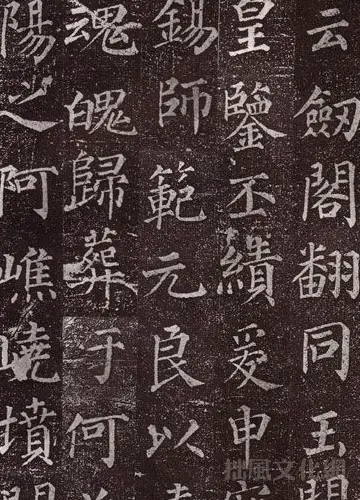 云劒閣翻同玉關
皇鑒丕績爰申
錫師範元良以
魂魄歸葬于何
陽之阿嶕嶢墳
拙風文化網